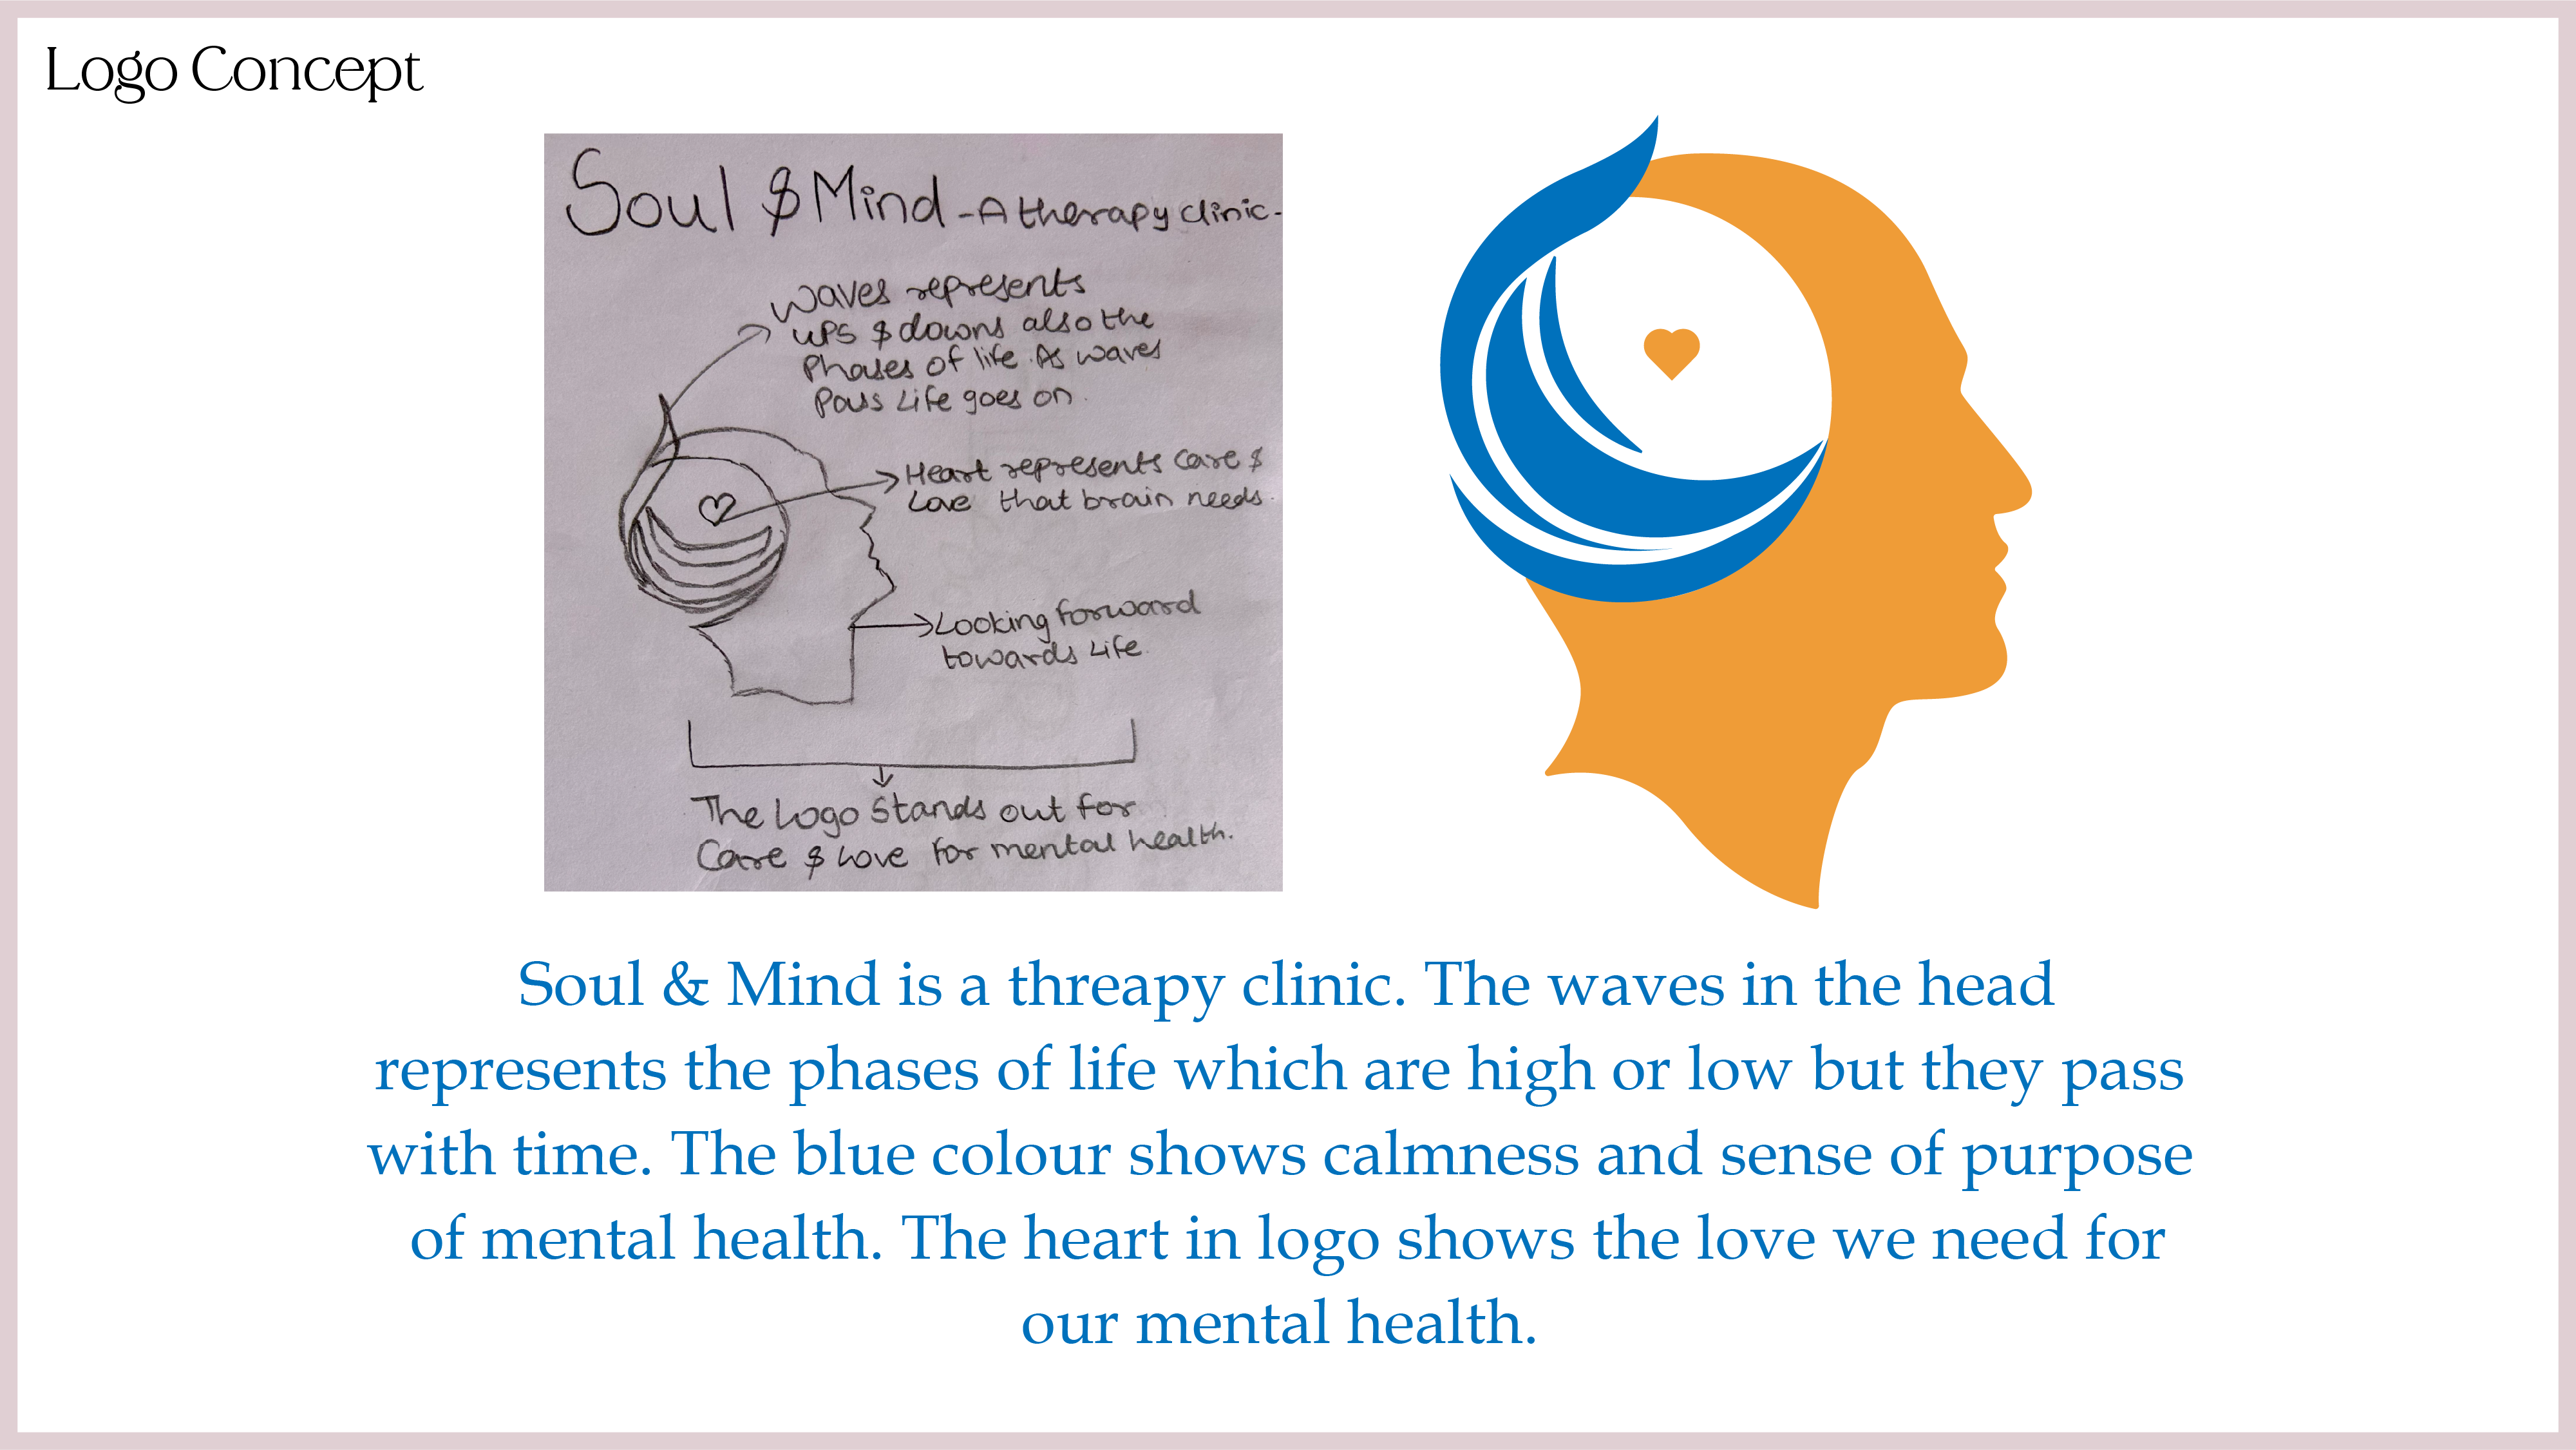 Logo Concept
Soul & Mind - A therapy clinic -
Waves represents
UPS & downs also the
Phases of life. As waves
Pass Life goes on.
Heart represents care &
Love that brain needs.
Looking forward
towards Life.
The Logo Stands out for
Care & Love for mental health.
Soul & Mind is a threapy clinic. The waves in the head
represents the phases of life which are high or low but they pass
with time. The blue colour shows calmness and sense of purpose
of mental health. The heart in logo shows the love we need for
our mental health.